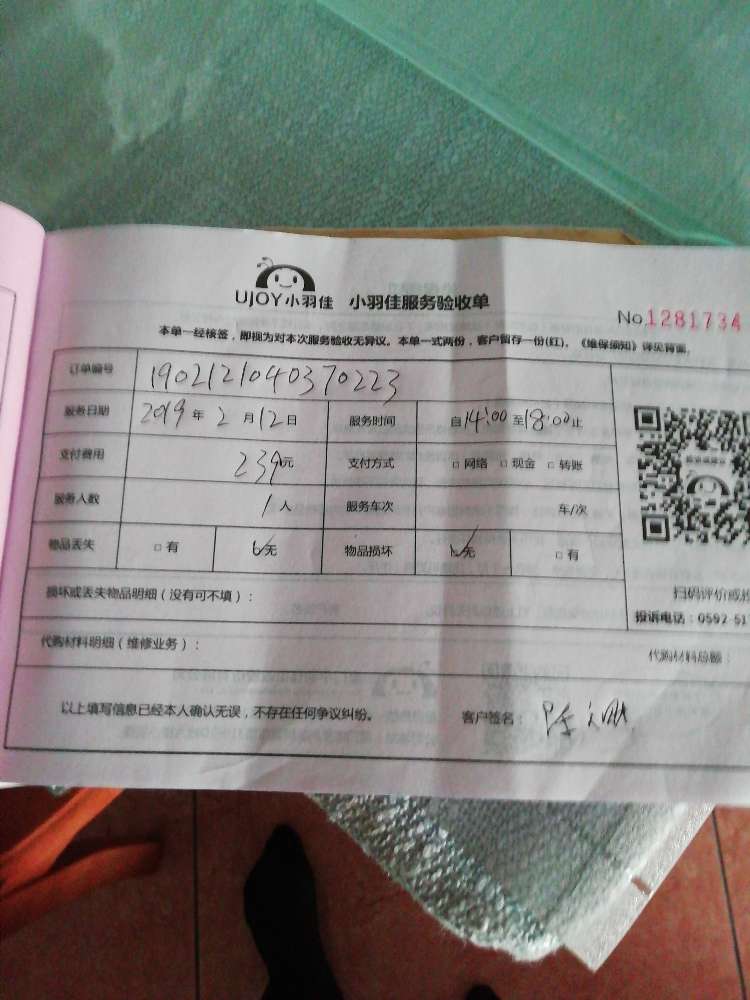 UJOY小羽佳 小羽佳服务验收单
No.1281734
本单一经核签，即视为对本次服务验收无异议。本单一式两份，客户留存一份(红)。《维保须知》详见背面。
订单编号 1902121040370223
服务日期 2019年2月12日 服务时间 自14:00至18:00止
支付费用 239元 支付方式 □网络 □现金 □转账
服务人数 1人 服务车次 车/次
物品丢失 □有 ☑无 物品损坏 ☑无 □有
损坏或丢失物品明细（没有可不填）：
扫码评价或投
投诉电话：0592-517
代购材料明细（维修业务）：
代购材料总额：
以上填写信息已经本人确认无误，不存在任何争议纠纷。 客户签名：